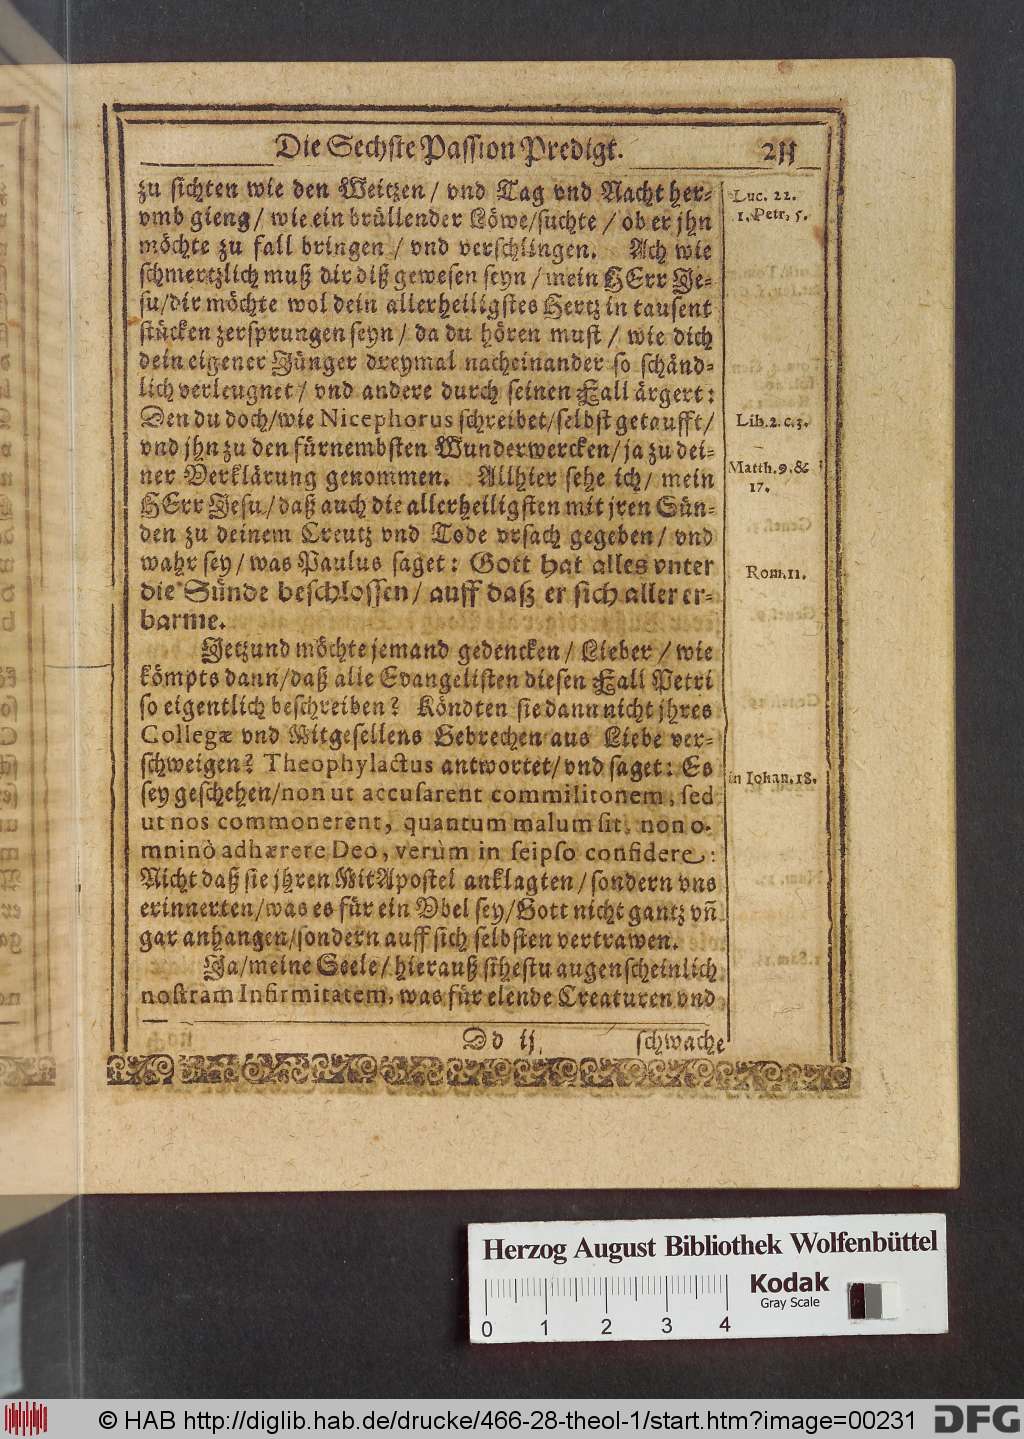 Die Sechste Passion Predigt. 211
zu sichten wie den Weitzen / vnd Tag vnd Nacht her-
vmb gieng / wie ein brüllender Löwe/suchte / ob er jhn
möchte zu fall bringen / vnd verschlingen. Ach wie
schmertzlich muß dir diß gewesen seyn / mein HErr Je-
su/dir möchte wol dein allerheiligstes Hertz in tausent
stücken zersprungen seyn / da du hören must / wie dich
dein eigener Jünger dreymal nacheinander so schänd-
lich verleugnet / vnd andere durch seinen Fall ärgert:
Den du doch/wie Nicephorus schreibet/selbst getaufft/
vnd jhn zu den fürnembsten Wunderwercken/ ja zu dei-
ner Verklärung genommen. Allhier sehe ich/ mein
HErr Jesu/ daß auch die allerheiligsten mit jren Sün-
den zu deinem Creutz vnd Tode vrsach gegeben/ vnd
wahr sey/ was Paulus saget: Gott hat alles vnter
die Sünde beschlossen/ auff daß er sich aller er-
barme.
Jetzund möchte jemand gedencken/ Lieber / wie
kömpts dann/daß alle Evangelisten diesen Fall Petri
so eigentlich beschreiben? Köndten sie dann nicht jhres
Collegæ vnd Mitgesellens Gebrechen aus Liebe ver-
schweigen? Theophylactus antwortet/ vnd saget: Es
sey geschehen/non ut accusarent commilitonem, sed
ut nos commonerent, quantum malum sit, non o-
mninò adhærere Deo, verùm in seipso confidere:
Nicht daß sie jhren MitApostel anklagten/ sondern vns
erinnerten/was es für ein Vbel sey/Gott nicht gantz vñ
gar anhangen/sondern auff sich selbsten vertrawen.
Ja/meine Seele/ hierauß sihestu augenscheinlich
nostram Infirmitatem, was für elende Creaturen vnd
Dd ij. schwache
Luc. 22.
1. Petr. 5.
Lib. 2. c. 3.
Matth. 9. &
17.
Rom. 11.
in Iohan. 18.
Herzog August Bibliothek Wolfenbüttel
Kodak
Gray Scale
0 1 2 3 4
© HAB http://diglib.hab.de/drucke/466-28-theol-1/start.htm?image=00231
DFG